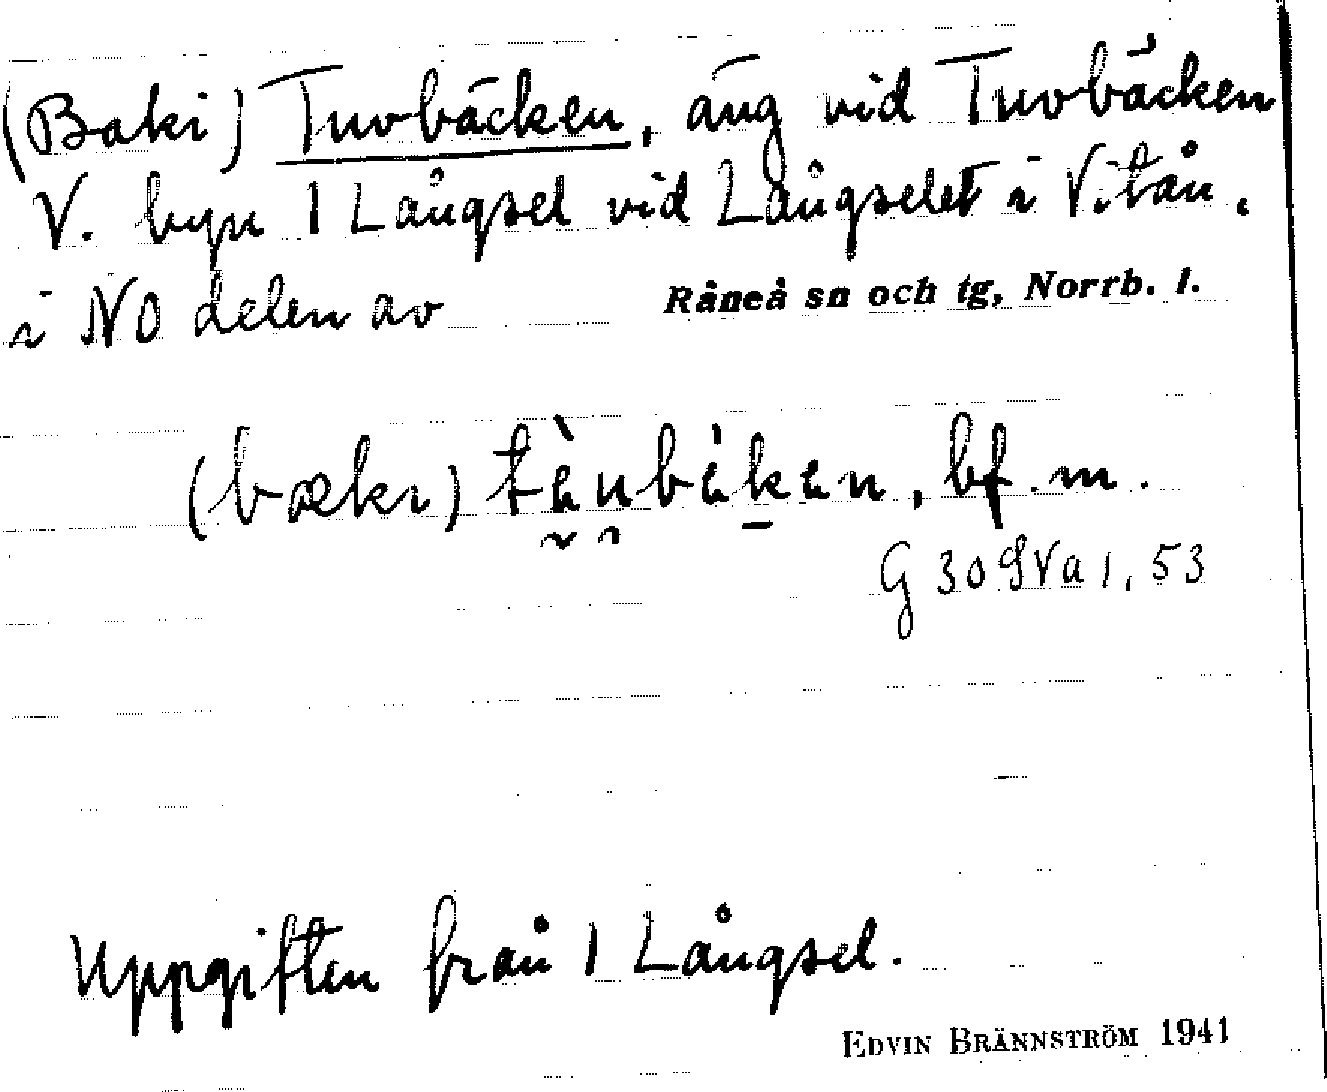 (Baki) Tuvbäcken, äng vid Tuvbäcken
V. byn 1 Långsel vid Långselet i Vitån,
i NO delen av Råneå sn och tg, Norrb. l.
bf. m.
G 30 SVa 1, 53
Uppgiften från 1 Långsel.
EDVIN BRÄNNSTRÖM 1941